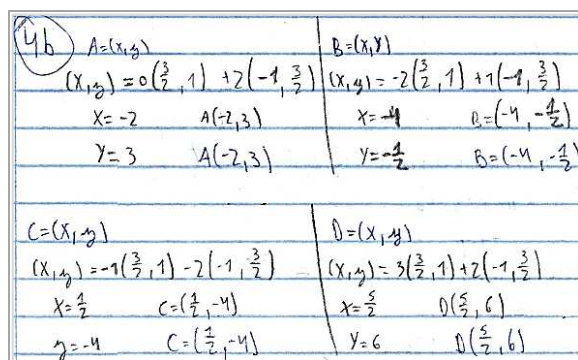 4b
A=(x,y)
(x,y)=0(3/2,1)+2(-1,3/2)
x=-2 A(-2,3)
y=3 A(-2,3)
B=(x,y)
(x,y)=-2(3/2,1)+1(-1,3/2)
x=-4 B=(-4,-1/2)
y=-1/2 B=(-4,-1/2)
C=(x,y)
(x,y)=-1(3/2,1)-2(-1,3/2)
x=1/2 C=(1/2,-4)
y=-4 C=(1/2,-4)
D=(x,y)
(x,y)=3(3/2,1)+2(-1,3/2)
x=5/2 D(5/2,6)
y=6 D(5/2,6)